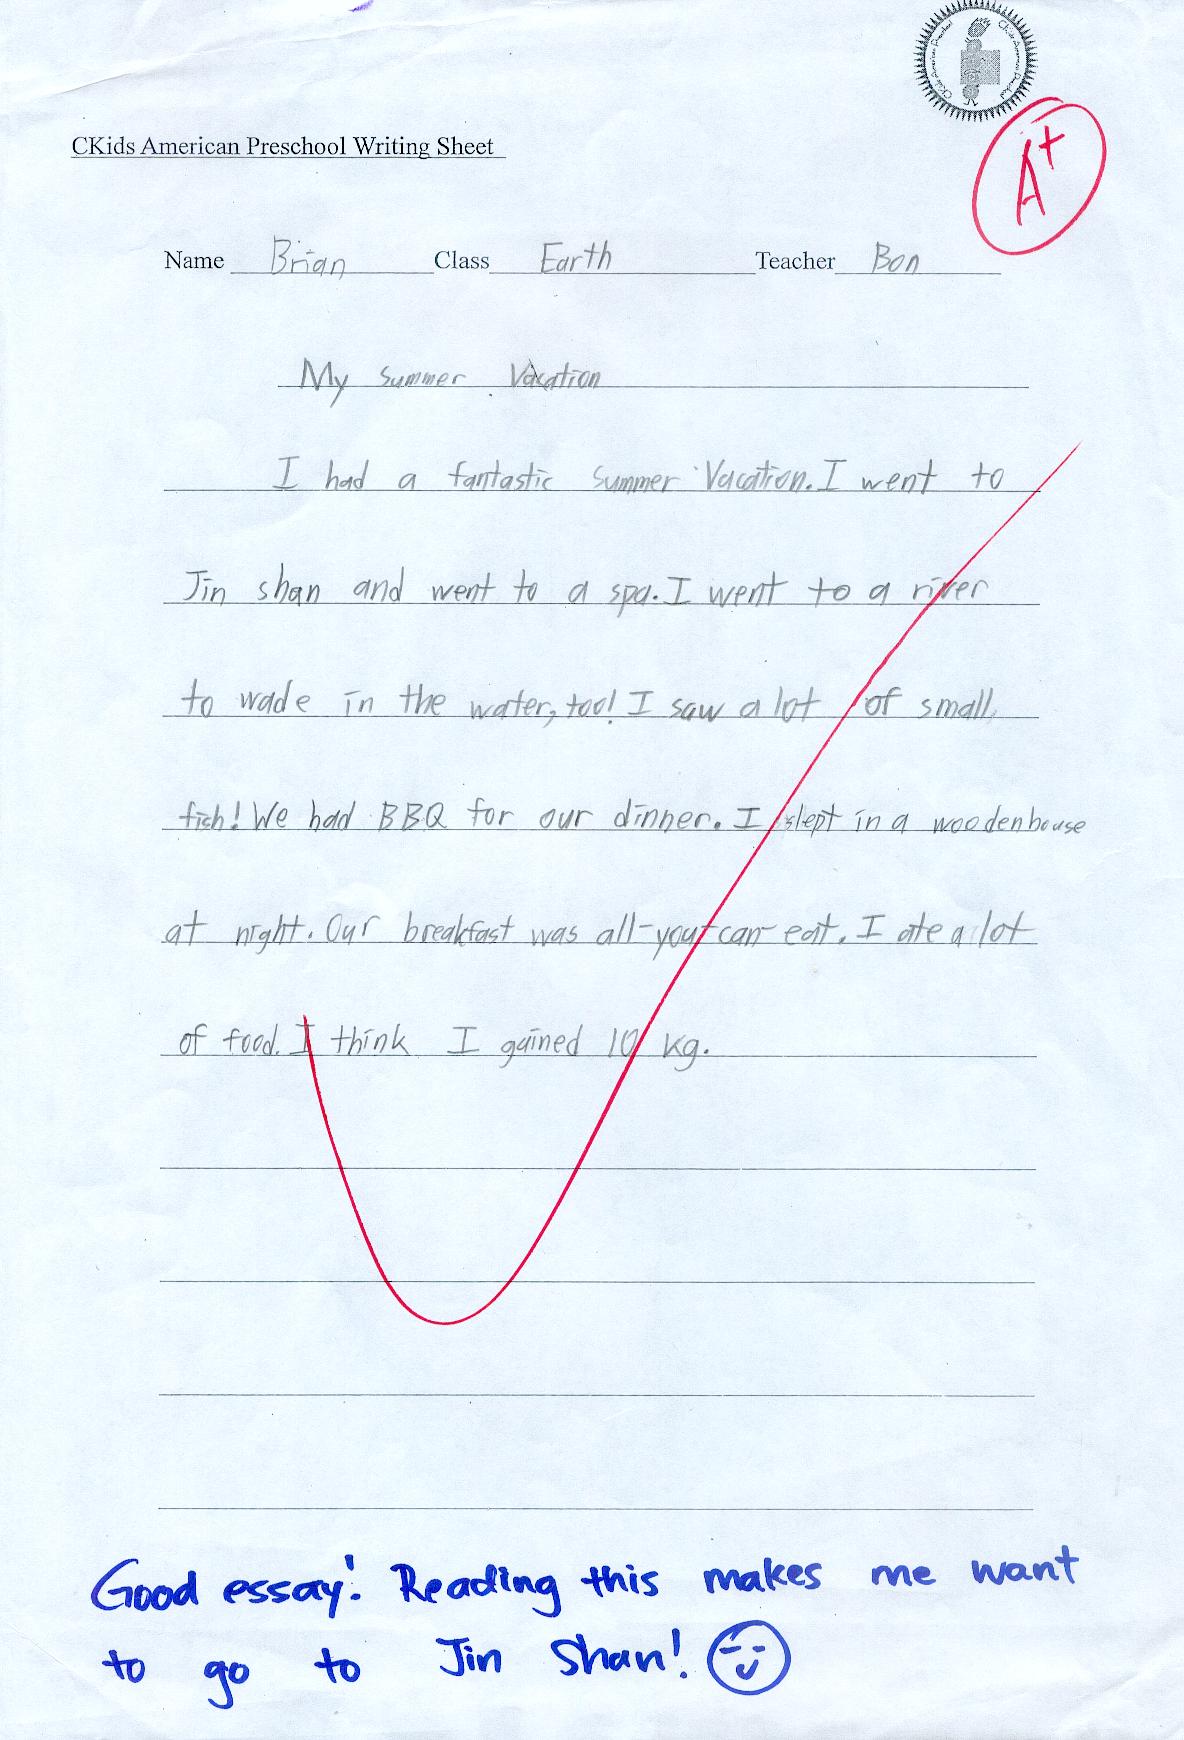 CKids American Preschool Writing Sheet
A+
Name Brian Class Earth Teacher Bon
My Summer Vacation
I had a fantastic summer Vacation. I went to
Jin shan and went to a spa. I went to a river
to wade in the water, too! I saw a lot of small
fish! We had BBQ for our dinner. I slept in a wooden house
at night. Our breakfast was all-you-can-eat. I ate a lot
of food. I think I gained 10 kg.
Good essay! Reading this makes me want
to go to Jin Shan!